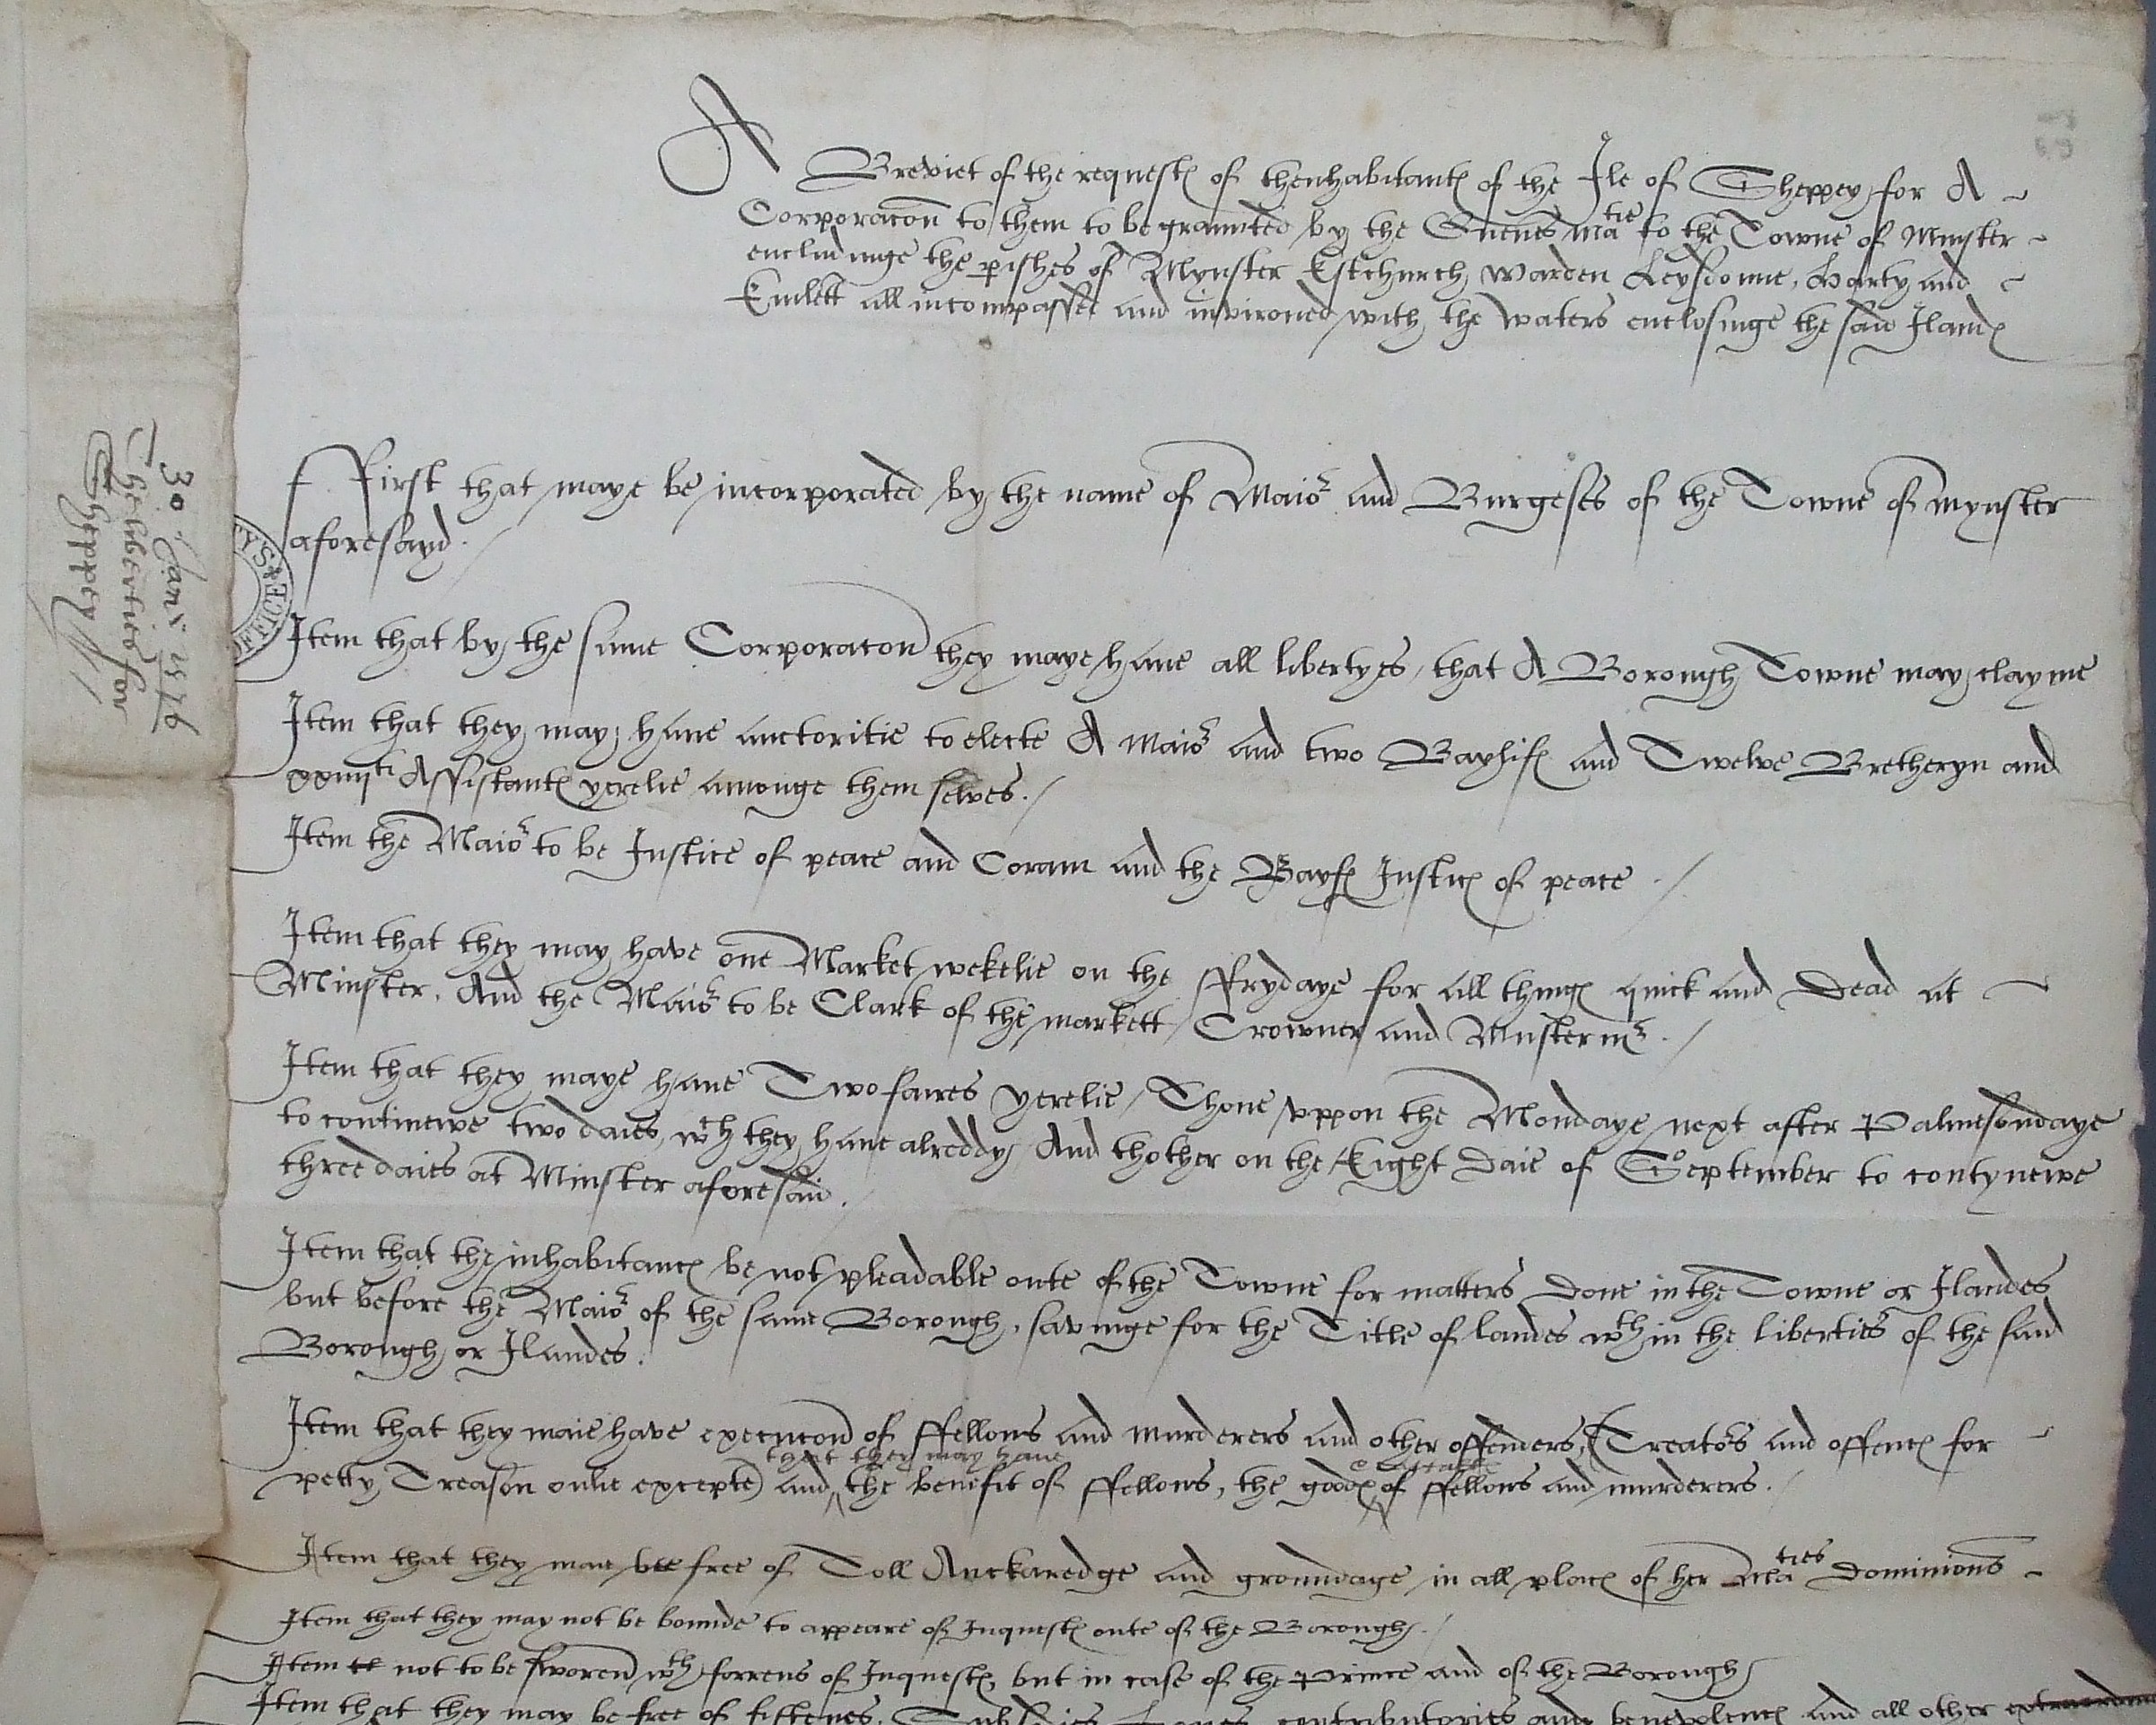 A Breviet of the requestes of thenhabitantes of the Ile of Sheppey for A
Corporacon to them to be graunted by the Quenes Matie to the Towne of Minster
encludinge the pishes of Mynster Estchurch, Warden Leysdonne, Harty and
Emlett all incompassed and invironed with the waters enclosinge the said Ilandes
ffirst that maye be incorporated by the name of Maior and Burgeses of the Towne of Mynster
aforesayd.
Item that by the same Corporacon they maye haue all libertyes, that A Borough Towne may clayme
Item that they may haue auctoritie to electe A Maior and two Baylifes and Twelve Bretheryn and
xxiiijti Assistantes yerelie amonge them selves./
Item the Maior to be Justice of peace and Coram and the Bayles Justices of peace ./
Item that they may have one Market wekelie on the ffrydaye for all thinges quick and Dead at
Minster. And the Maior to be Clark of the markett / Crowner and Muster mr ./
Item that they maye haue Two faires yerelie / Thone uppon the Mondaye next after Palmesondaye
to continewe two daies, wch they haue alreddy And thother on the Eight Daie of September to contynewe
three daies at Minster aforesaid.
Item that the inhabitantes be not pleadable oute of the Towne for matters Done in the Towne or Ilandes
but before the Maior of the same Borough, savinge for the Title of landes wthin the liberties of the said
Borough or Ilandes.
Item that they maie have execucon of ffellons and murderers and other offenders, (Treators and offences for
that they may haue
petty Treason onlie excepte) and the benefit of ffellons, the goodes of ffellons and murderers.
Item that they maie bee free of Toll Anckaredge and groundage in all places of her Maties Dominions
Item that they may not be bounde to appeare of Inquestes oute of the Borough./
Item not to be sworen wth forrens of Inquestes, but in case of the Prince and of the Borough
Item that they may be free of fiftenes, Subsidies, Lones, contributories and benevolences and all other
30 Janr 1576
The liberties for
Sheppey